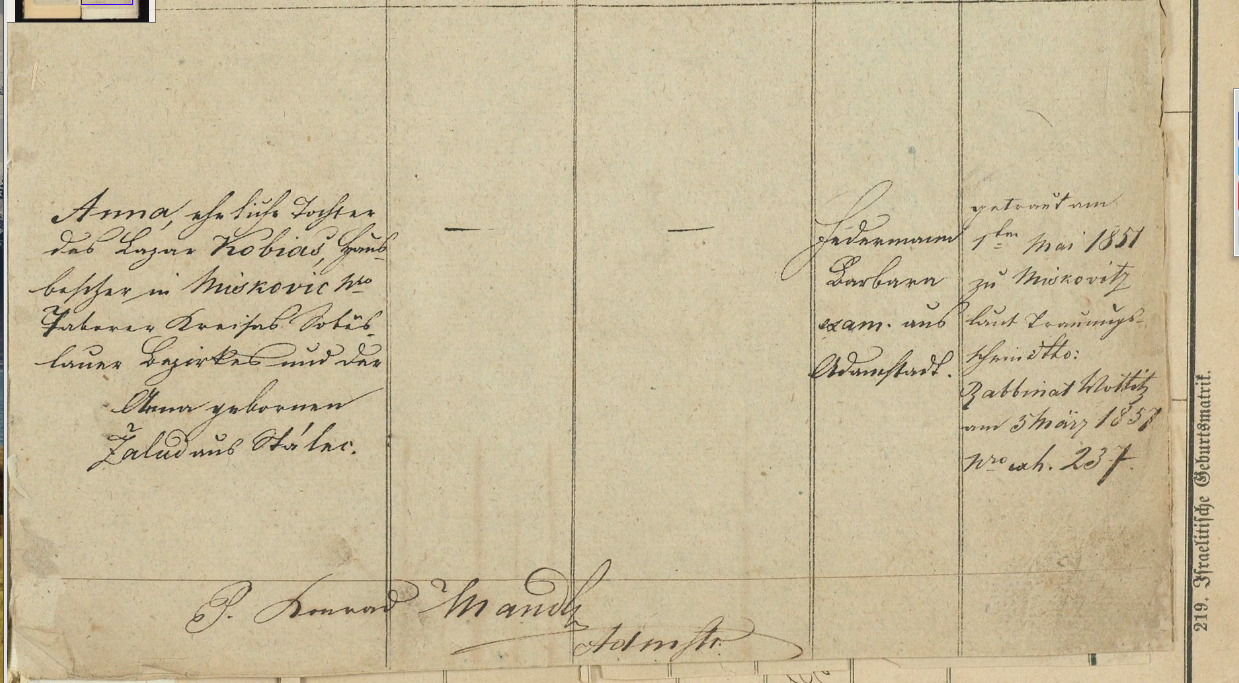 Anna, eheliche Tochter
des Lazar Kobias, Haus
besitzer in Miskovic Nro
Taborer Kreises Sobės
lauer Bezirkes und der
Anna gebornen
Žalud aus Stálec.
—
—
Hedermann
Barbara
exam. aus
Adamstadt.
getraut am
1ten Mai 1851
zu Miskovitz
laut Trauungs-
schein dtto:
Rabbinat Wottitz
am 5 März 1857
Nro exh. 237.
P. Konrad Mandl
Admstr.
219. Israelitische Geburtsmatrik.